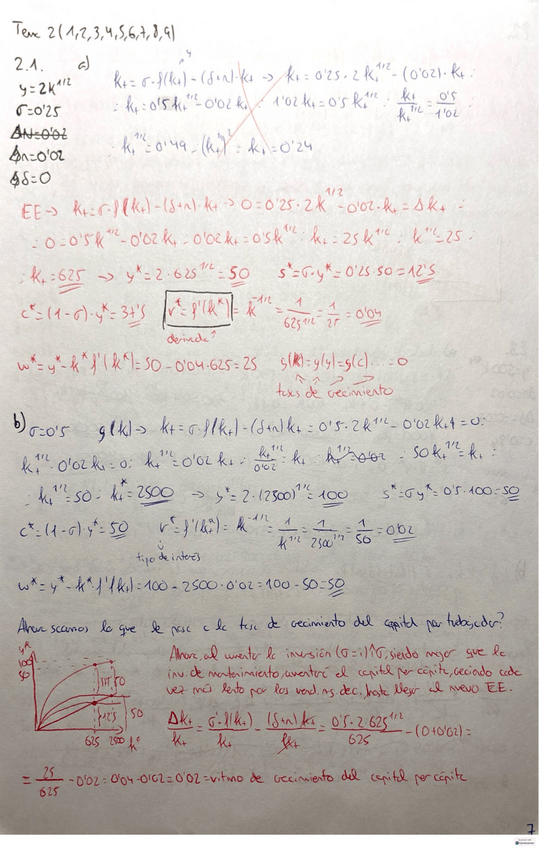 Tema 2 (1,2,3,4,5,6,7,8,9)
2.1. a)
y=2k^1/2
σ=0'25
ΔN=0'02
Δn=0'02
δ=0
k̇t = σ·f(kt)-(δ+n)·kt → kt = 0'25·2kt^1/2-(0'02)·kt :
: kt = 0'5kt^1/2-0'02kt : 1'02kt = 0'5kt^1/2 : kt/kt^1/2 = 0'5/1'02
: kt^1/2 = 0'49 → (kt)^1/2 = kt = 0'24
EE → kt = σ·f(kt)-(δ+n)·kt → 0 = 0'25·2k^1/2-0'02·kt = Δkt :
: 0 = 0'5k^1/2-0'02kt : 0'02kt = 0'5k^1/2 : kt = 25k^1/2 : k^1/2 = 25 :
: kt = 625 → y* = 2·625^1/2 = 50 s* = σ·y* = 0'25·50 = 12'5
c* = (1-σ)·y* = 37'5 r* = f'(k*) = k^-1/2 = 1/625^1/2 = 1/25 = 0'04
derivada
w* = y*-k*f'(k*) = 50-0'04·625 = 25 g(k)=g(y)=g(c)...=0
tasas de crecimiento
b) σ=0'5 g(k) → kt = σ·f(kt)-(δ+n)kt = 0'5·2k^1/2-0'02kt = 0 :
kt^1/2-0'02kt = 0 : kt^1/2 = 0'02kt : kt^1/2/0'02 = kt : 50kt^1/2 = kt :
: kt^1/2 = 50 : kt* = 2500 → y* = 2·(2500)^1/2 = 100 s* = σy* = 0'5·100 = 50
c* = (1-σ)·y* = 50 r* = f'(kt*) = k^-1/2 = 1/k^1/2 = 1/2500^1/2 = 1/50 = 0'02
tipo de interés
w* = y*-k*f'(kt) = 100-2500·0'02 = 100-50 = 50
Ahora sacamos lo que le pasa a la tasa de crecimiento del capital por trabajador?
100
50
37'5
50
12'5
50
625 2500 k*
Ahora, al aumentar la inversión (σ=i)↑σ, siendo mayor que la
inv. de mantenimiento, aumentará el capital per cápita, creciendo cada
vez más lento por los rend. mg. dec., hasta llegar al nuevo EE.
Δkt/kt = σ·f(kt)/kt - (δ+n)kt/kt = 0'5·2·625^1/2/625 -(0+0'02) =
= 25/625 -0'02 = 0'04-0'02 = 0'02 = ritmo de crecimiento del capital per cápita
7